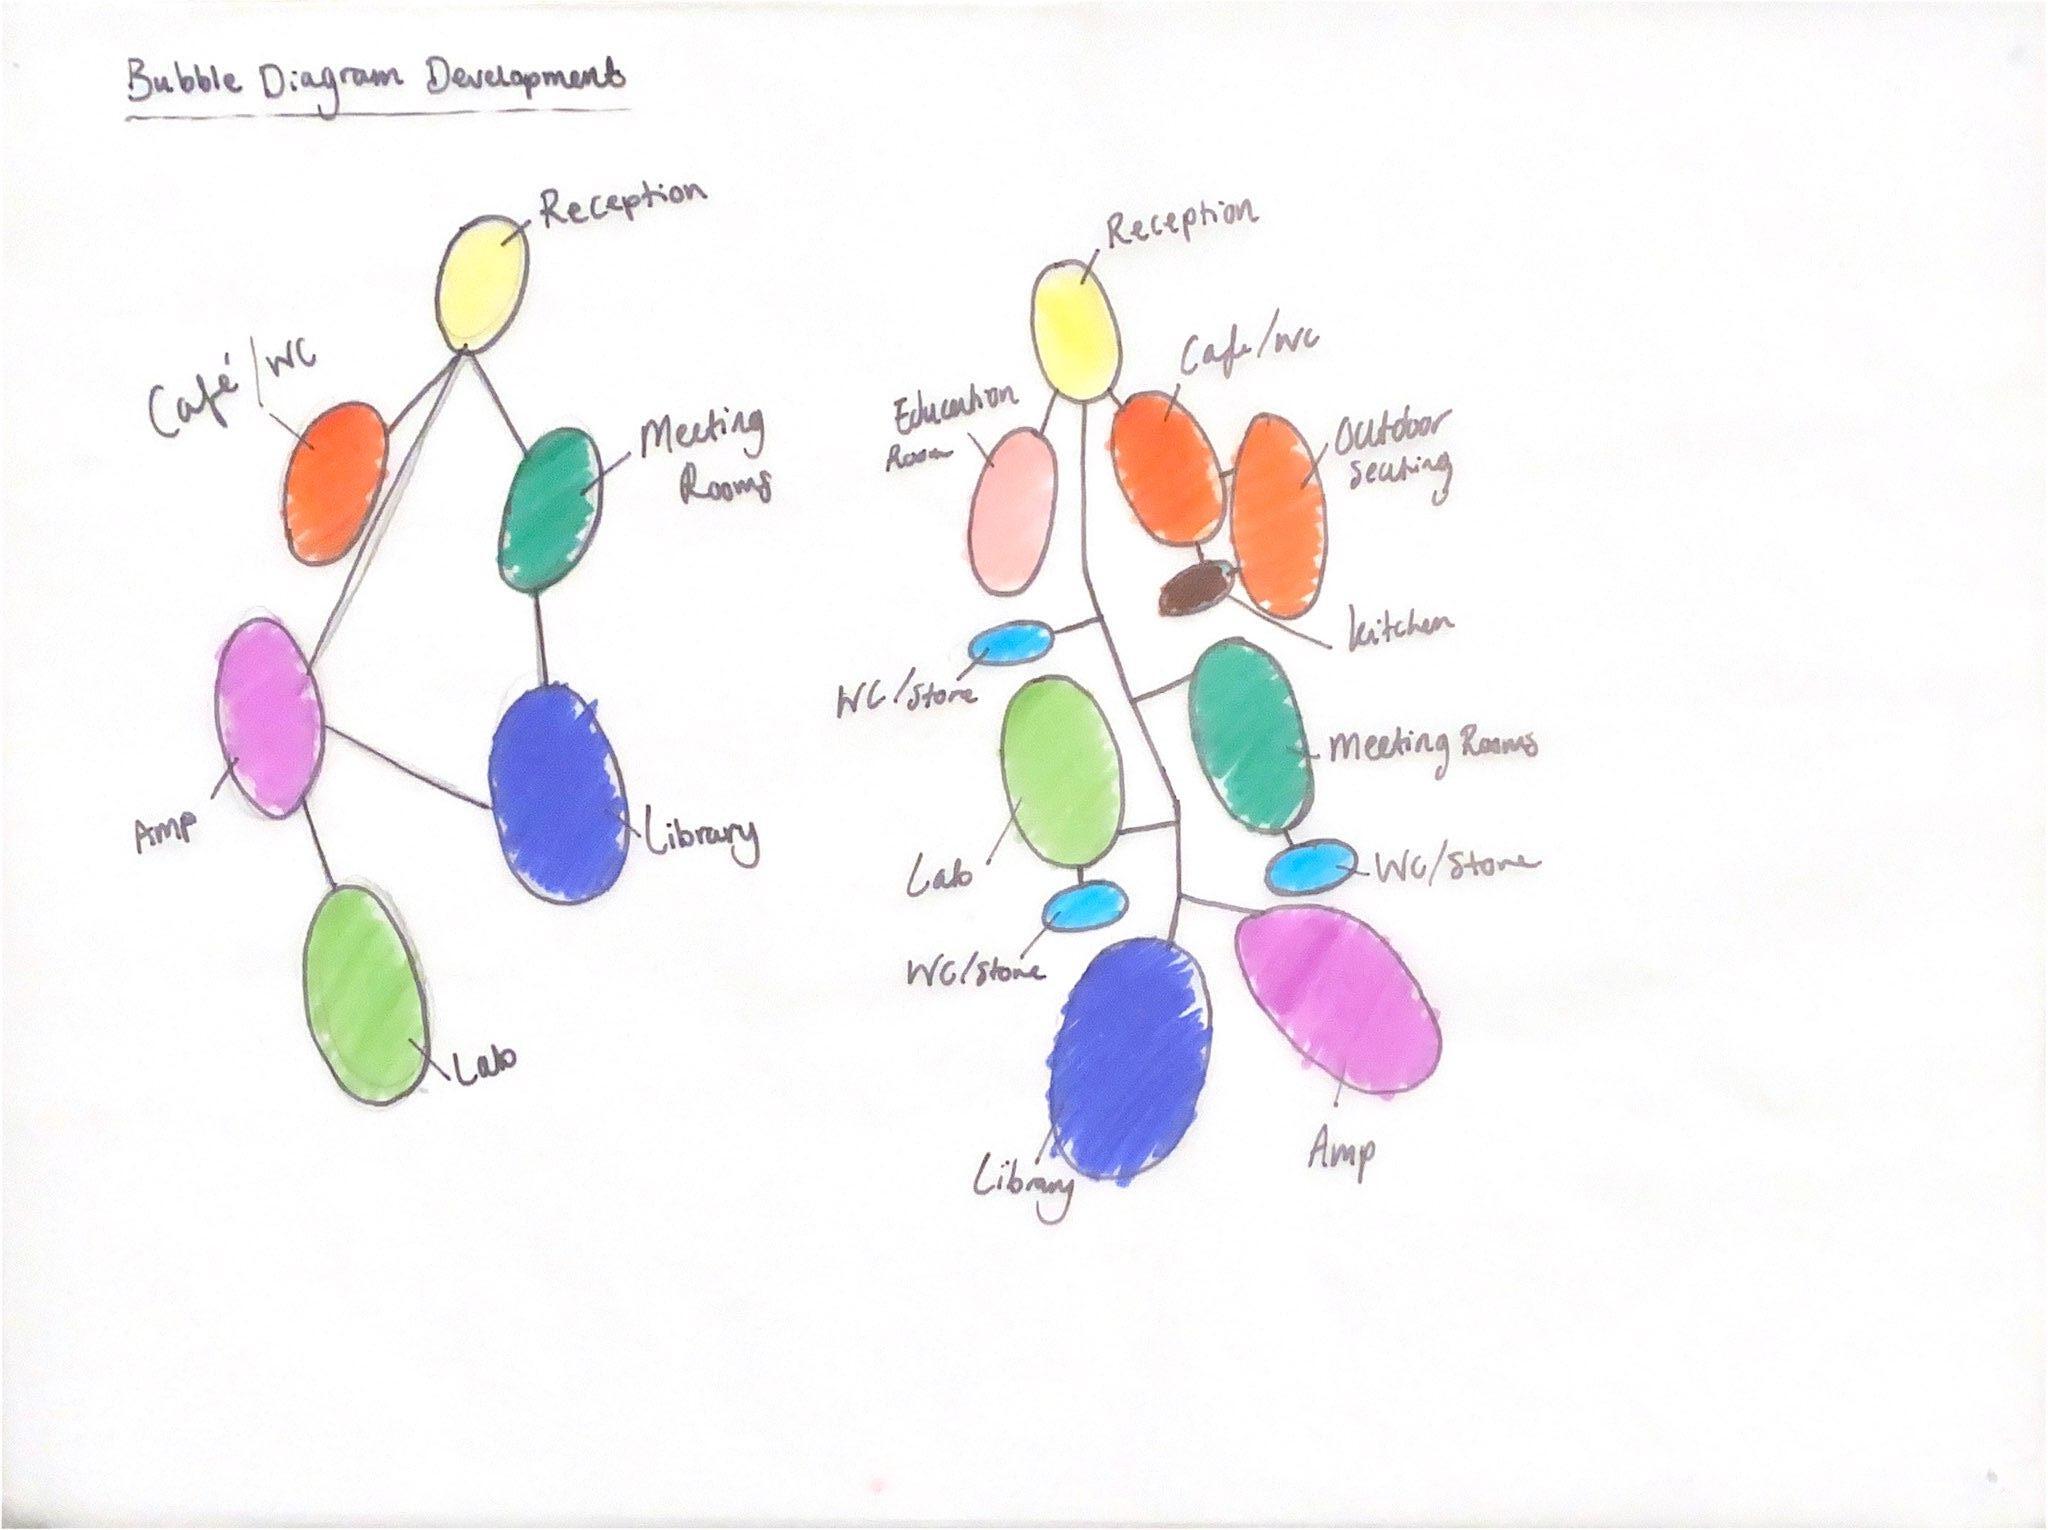 Bubble Diagram Development
Reception
Café/WC
Meeting
Rooms
Amp
Library
Lab
Reception
Cafe/WC
Education
Room
Outdoor
Seating
Kitchen
WC/Store
Meeting Rooms
Lab
WC/Store
WC/Store
Library
Amp